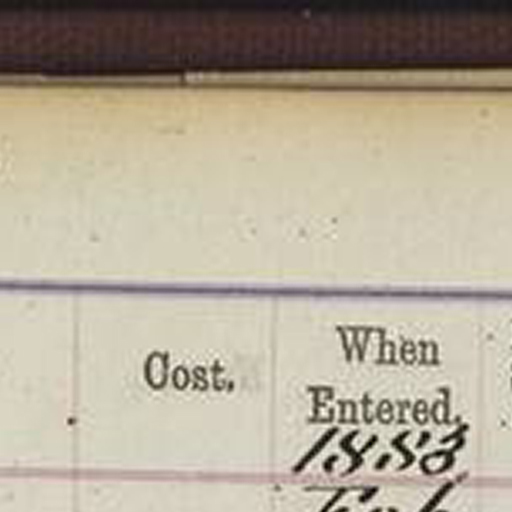 Cost.
When
Entered.
1883
Feb